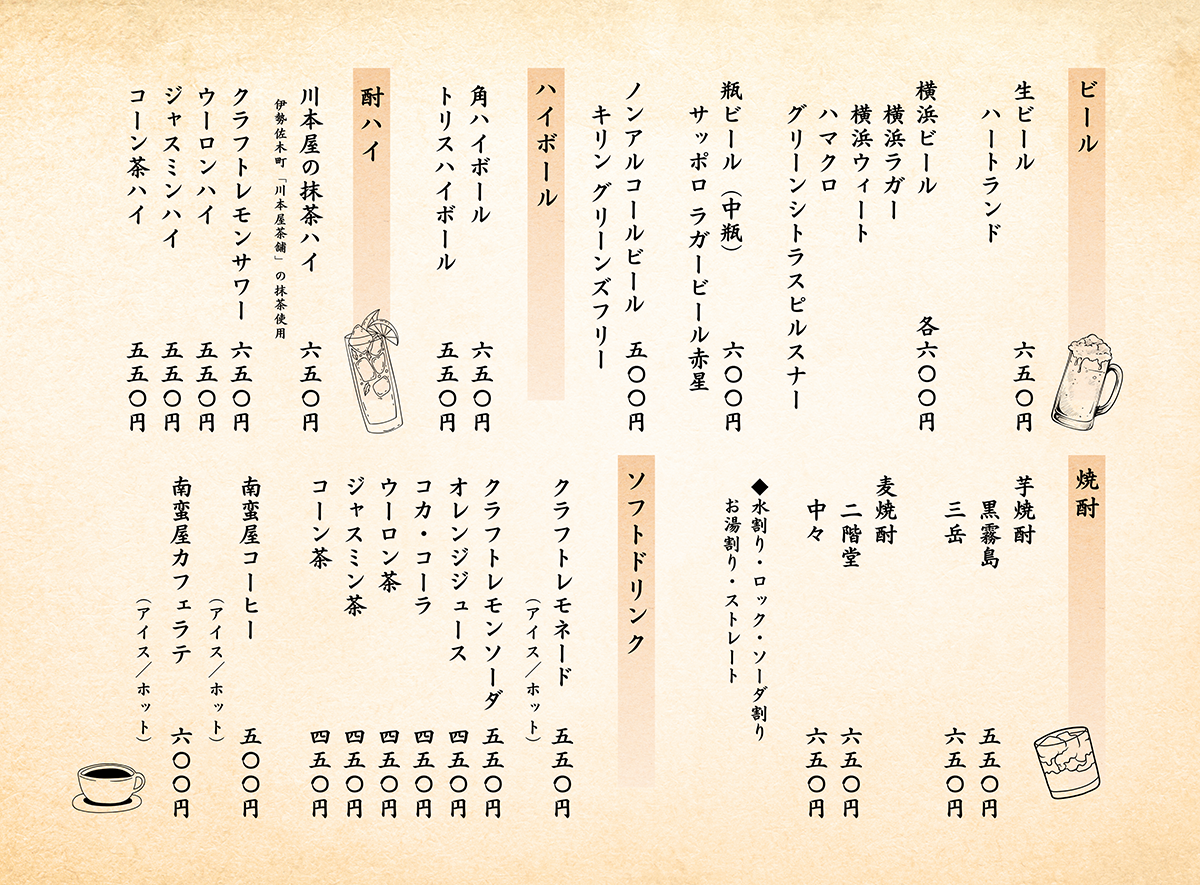 ビール
生ビール 六五〇円
ハートランド
横浜ビール 各六〇〇円
横浜ラガー
横浜ウィート
ハマクロ
グリーンシトラスピルスナー
瓶ビール（中瓶） 六〇〇円
サッポロ ラガービール赤星
ノンアルコールビール 五〇〇円
キリン グリーンズフリー
ハイボール
角ハイボール 六五〇円
トリスハイボール 五五〇円
酎ハイ
川本屋の抹茶ハイ 六五〇円
伊勢佐木町「川本屋茶舗」の抹茶使用
クラフトレモンサワー 六五〇円
ウーロンハイ 五五〇円
ジャスミンハイ 五五〇円
コーン茶ハイ 五五〇円
焼酎
芋焼酎
黒霧島 五五〇円
三岳 六五〇円
麦焼酎
二階堂 六五〇円
中々 六五〇円
◆水割り・ロック・ソーダ割り
お湯割り・ストレート
ソフトドリンク
クラフトレモネード 五五〇円
（アイス／ホット）
クラフトレモンソーダ 五五〇円
オレンジジュース 四五〇円
コカ・コーラ 四五〇円
ウーロン茶 四五〇円
ジャスミン茶 四五〇円
コーン茶 四五〇円
南蛮屋コーヒー 五〇〇円
（アイス／ホット）
南蛮屋カフェラテ 六〇〇円
（アイス／ホット）